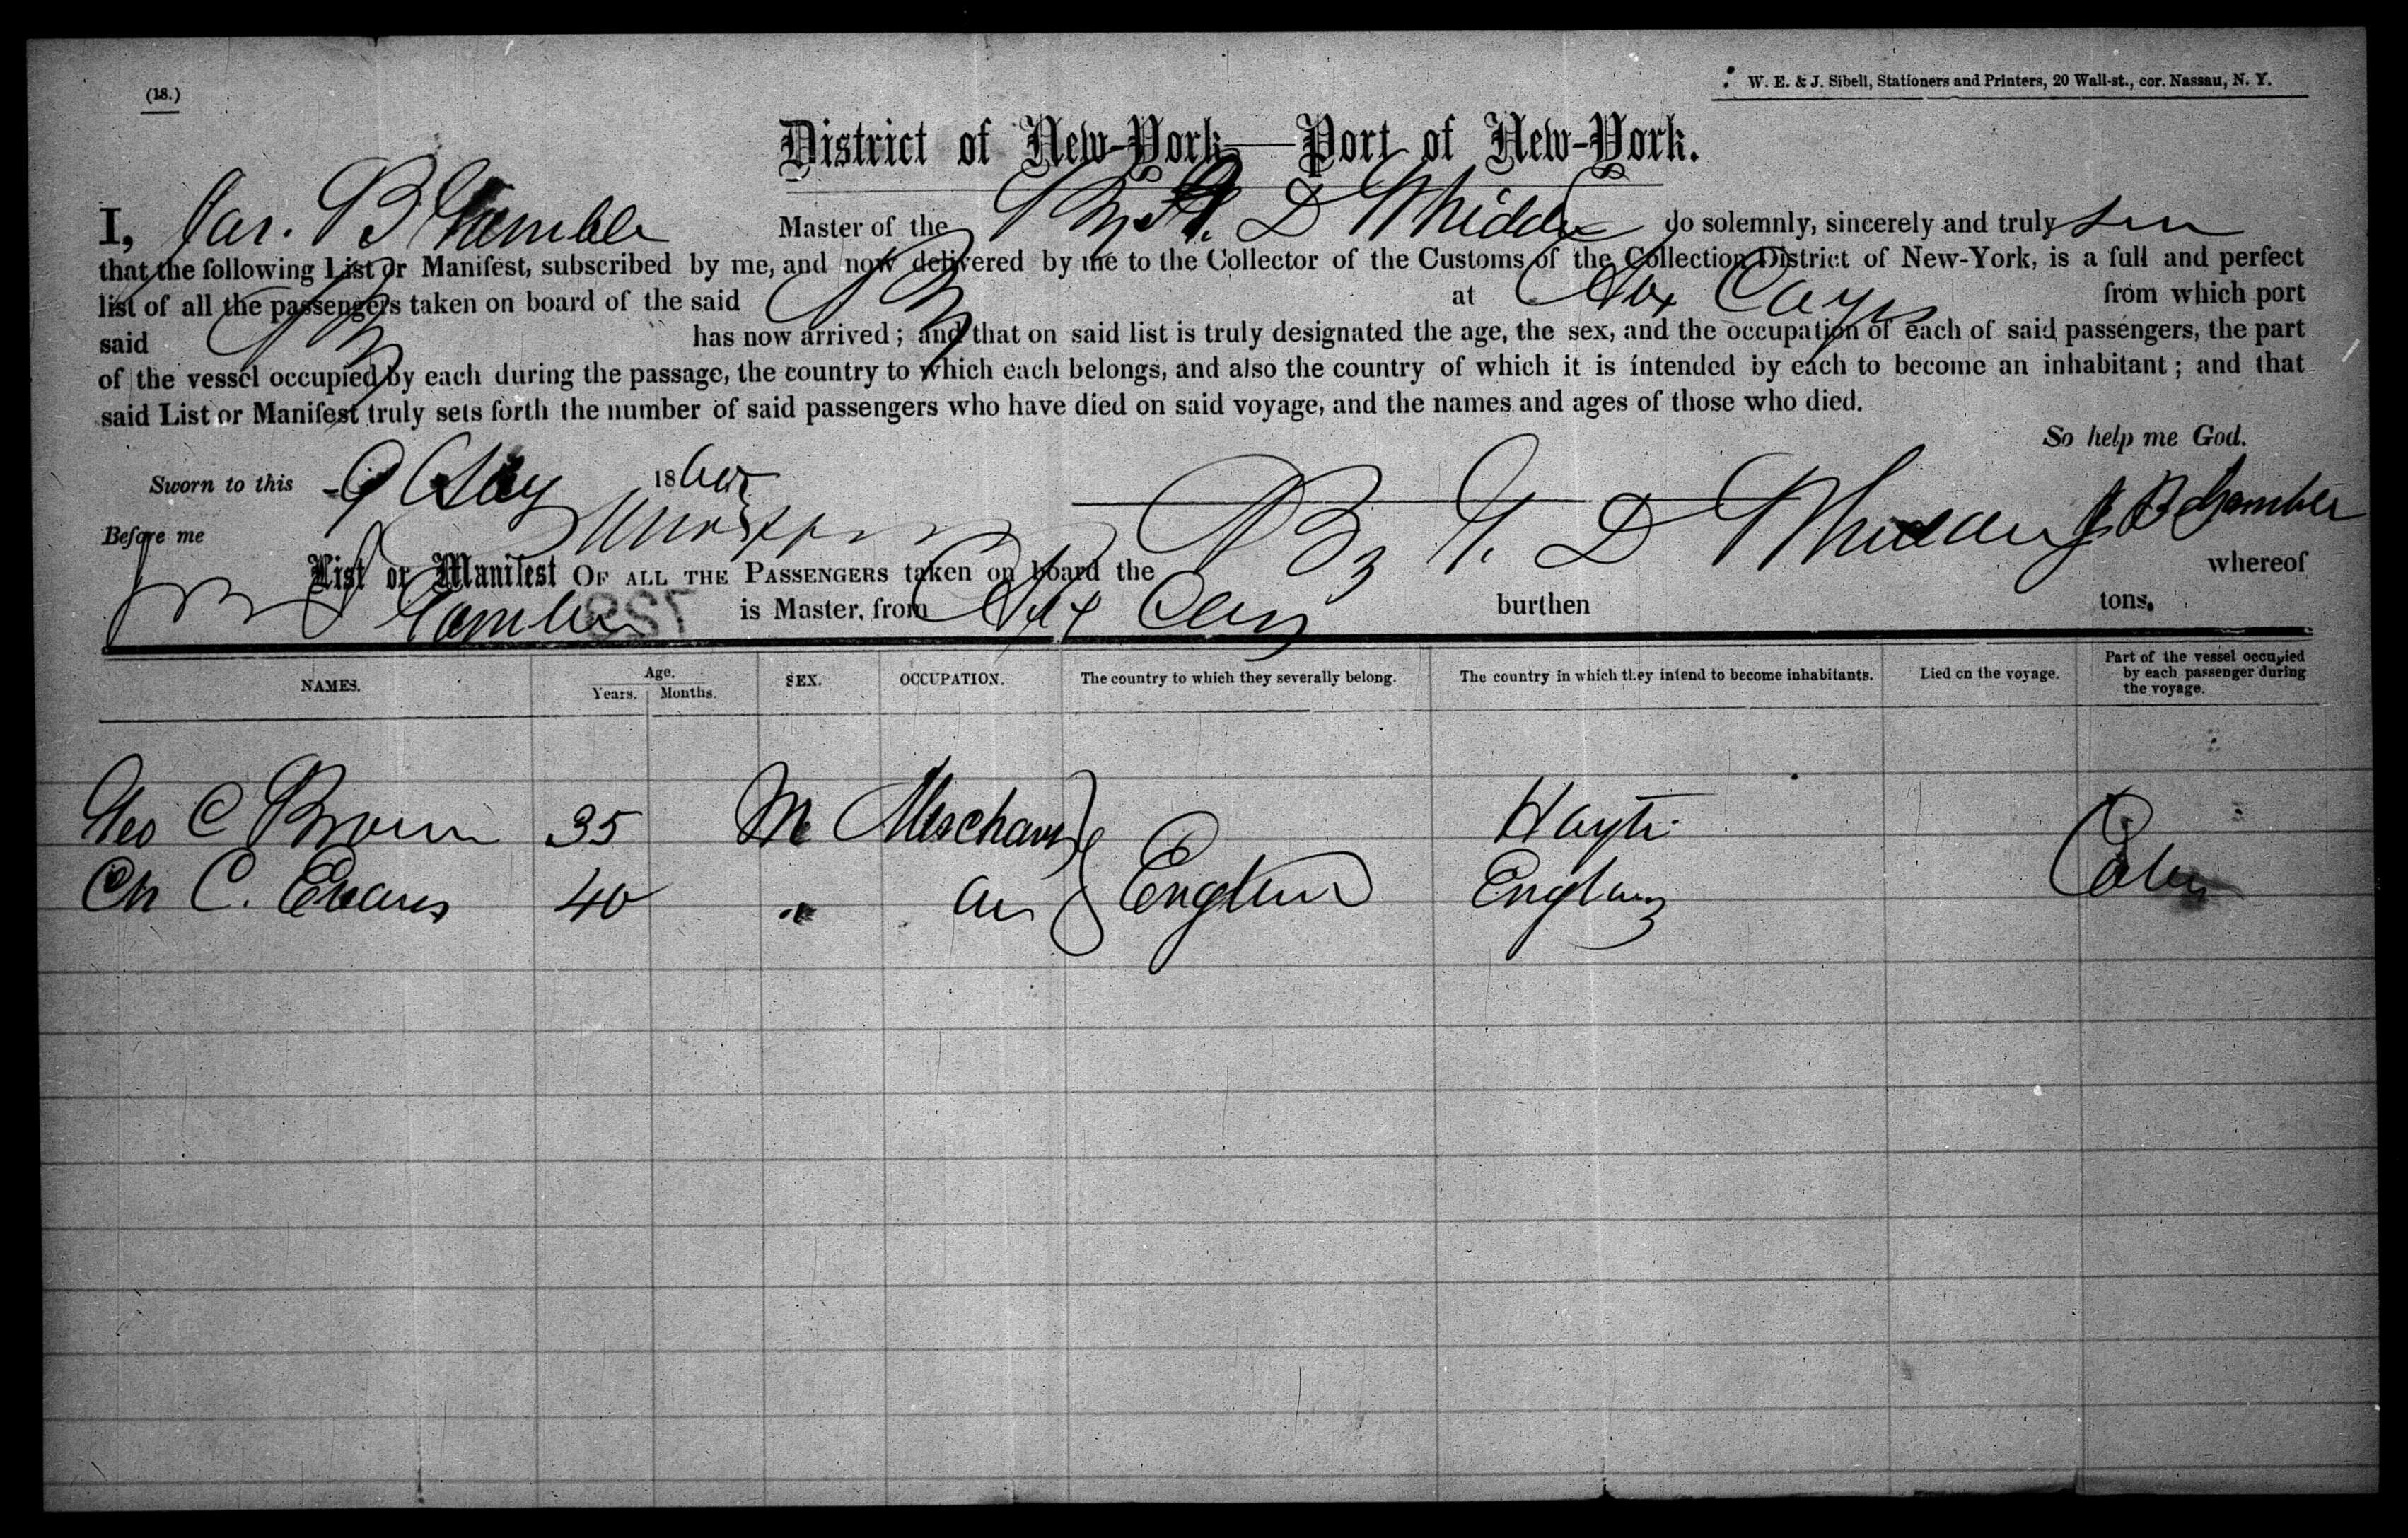 (18.)
W. E. & J. Sibell, Stationers and Printers, 20 Wall-st., cor. Nassau, N. Y.
District of New-York—Port of New-York.
I, Jas. B Gamble Master of the Brg A. D Whidden do solemnly, sincerely and truly
that the following List or Manifest, subscribed by me, and now delivered by me to the Collector of the Customs of the Collection District of New-York, is a full and perfect
list of all the passengers taken on board of the said Brg at Aux Cayes from which port
said Brg has now arrived; and that on said list is truly designated the age, the sex, and the occupation of each of said passengers, the part
of the vessel occupied by each during the passage, the country to which each belongs, and also the country of which it is intended by each to become an inhabitant; and that
said List or Manifest truly sets forth the number of said passengers who have died on said voyage, and the names and ages of those who died.
So help me God.
Sworn to this 9 186
Before me
J B Gamble
List or Manifest OF ALL THE PASSENGERS taken on board the Brg A. D Whidden whereof
J B Gamble is Master, from Aux Cay burthen tons.
727
NAMES. Age. Years. Months. SEX. OCCUPATION. The country to which they severally belong. The country in which they intend to become inhabitants. Died on the voyage. Part of the vessel occupied by each passenger during the voyage.
Geo C Brown 35 M Merchant Hayti
Ch C. Evans 40 " England England Cabin